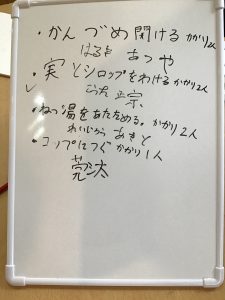 ・かんづめ開ける かかり2人
はるき あつや
・実とシロップをわける かかり2人
こうた 正宗
・ねつ湯をあたためる。かかり2人
れいじろう あきと
・コップにつぐ かかり1人
莞汰